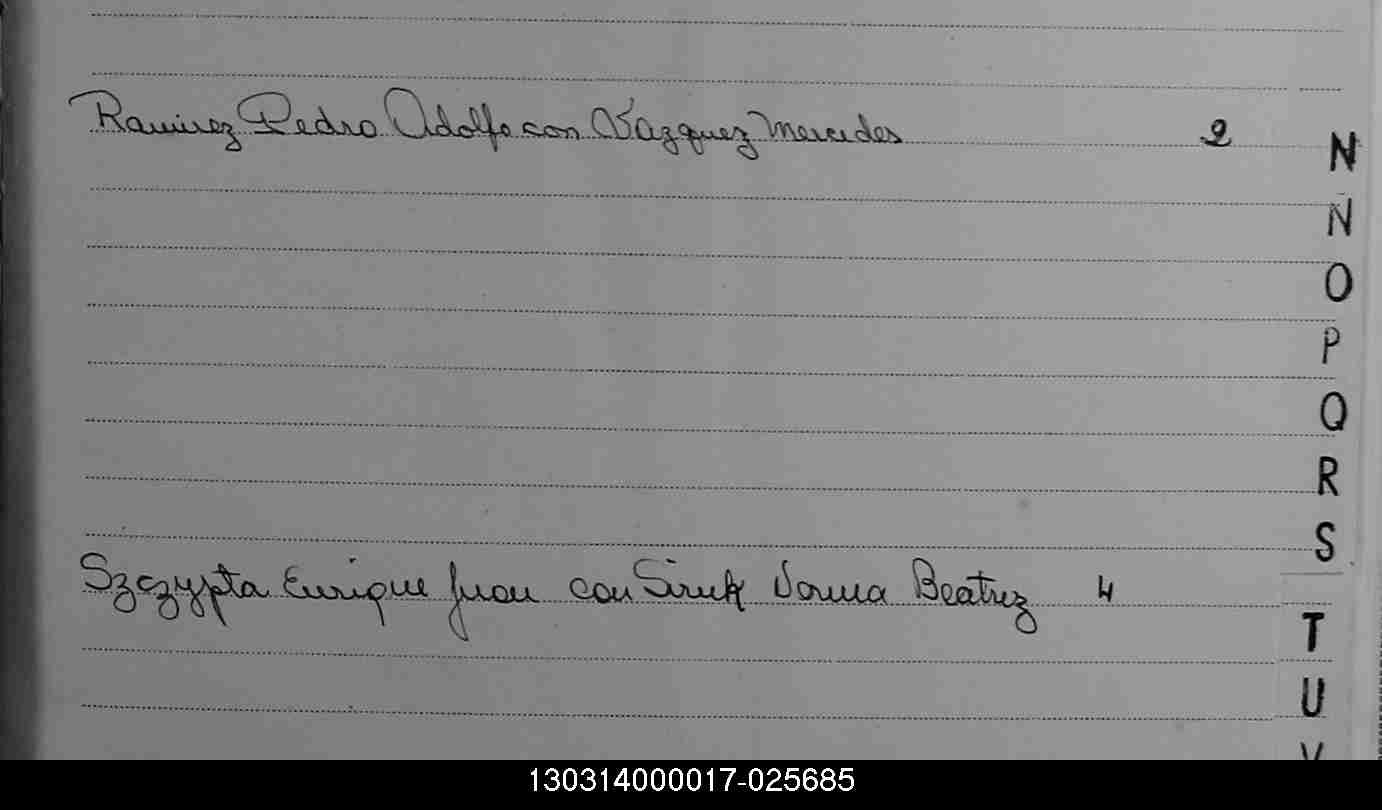 Ramirez Pedro Adolfo con Vazquez Mercedes 2
N
Ñ
O
P
Q
R
S
Szczypta Enrique Juan con Siruk Norma Beatriz 4
T
U
V
130314000017-025685